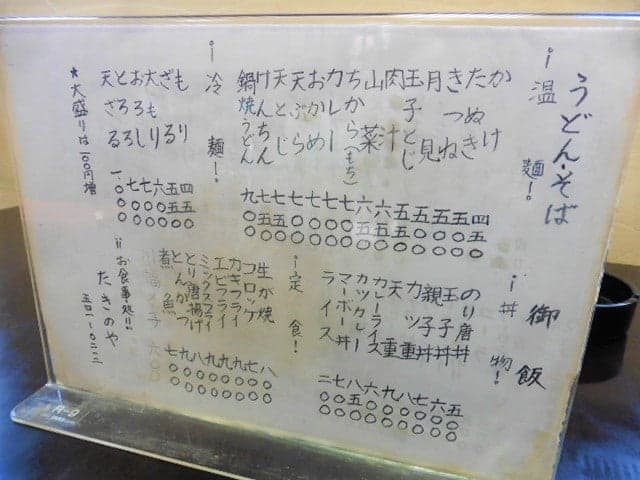 うどん・そば
温麺!
かけ 四五〇
たぬき 五〇〇
きつね 五五〇
月見 五五〇
玉子とじ 五五〇
肉汁 六五〇
山菜 六五〇
ちから(もち) 七〇〇
カレー 七〇〇
おかめ 七〇〇
天ぷら 七〇〇
天とじ 七五〇
けんちん 七五〇
鍋焼うどん 九〇〇
冷麺!
もり 四五〇
ざる 五五〇
大もり 六〇〇
おろし 七〇〇
とろろ 七〇〇
天ざる 一〇〇〇
★大盛りは一〇〇円増
御飯
丼物!
のり唐丼 五〇〇
玉子丼 六〇〇
親子丼 七〇〇
カツ重 八〇〇
天重 九〇〇
カレーライス 六〇〇
カツカレー 八〇〇
マーボー丼 七五〇
ライス 二〇〇
定食!
生が焼 八〇〇
コロッケ 七〇〇
カキフライ 九〇〇
エビフライ 九〇〇
ミックスフライ 九〇〇
とり唐揚げ 八〇〇
とんかつ 九〇〇
煮魚 七〇〇
お食事処!!
たきのや